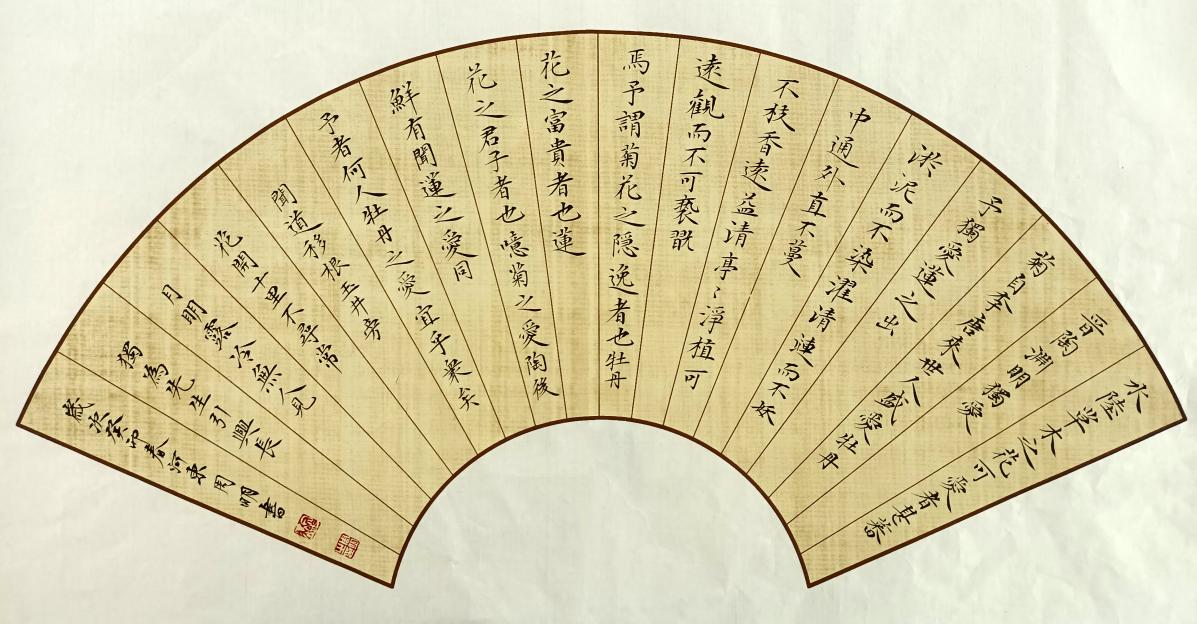 水陸草木之花可愛者甚蕃
晉陶淵明獨愛
菊自李唐來世人盛愛牡丹
予獨愛蓮之出
淤泥而不染濯清漣而不妖
中通外直不蔓
不枝香遠益清亭〻淨植可
遠觀而不可褻翫
焉予謂菊花之隱逸者也牡丹
花之富貴者也蓮
花之君子者也噫菊之愛陶後
鮮有聞蓮之愛同
予者何人牡丹之愛宜乎衆矣
聞道移根玉井旁
花開十里不尋常
月明露冷無人見
獨為先生引興長
歲次癸卯春河東周明書